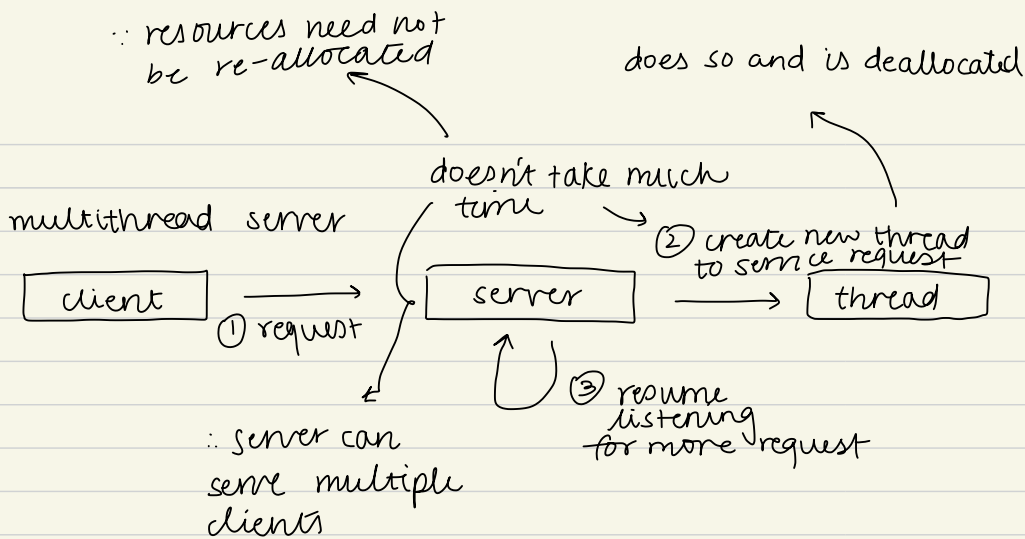 ∵ resources need not
be re-allocated
does so and is deallocated
doesn't take much
time
multithread server
② create new thread
to service request
client
server
thread
① request
③ resume
listening
for more request
∴ server can
serve multiple
clients